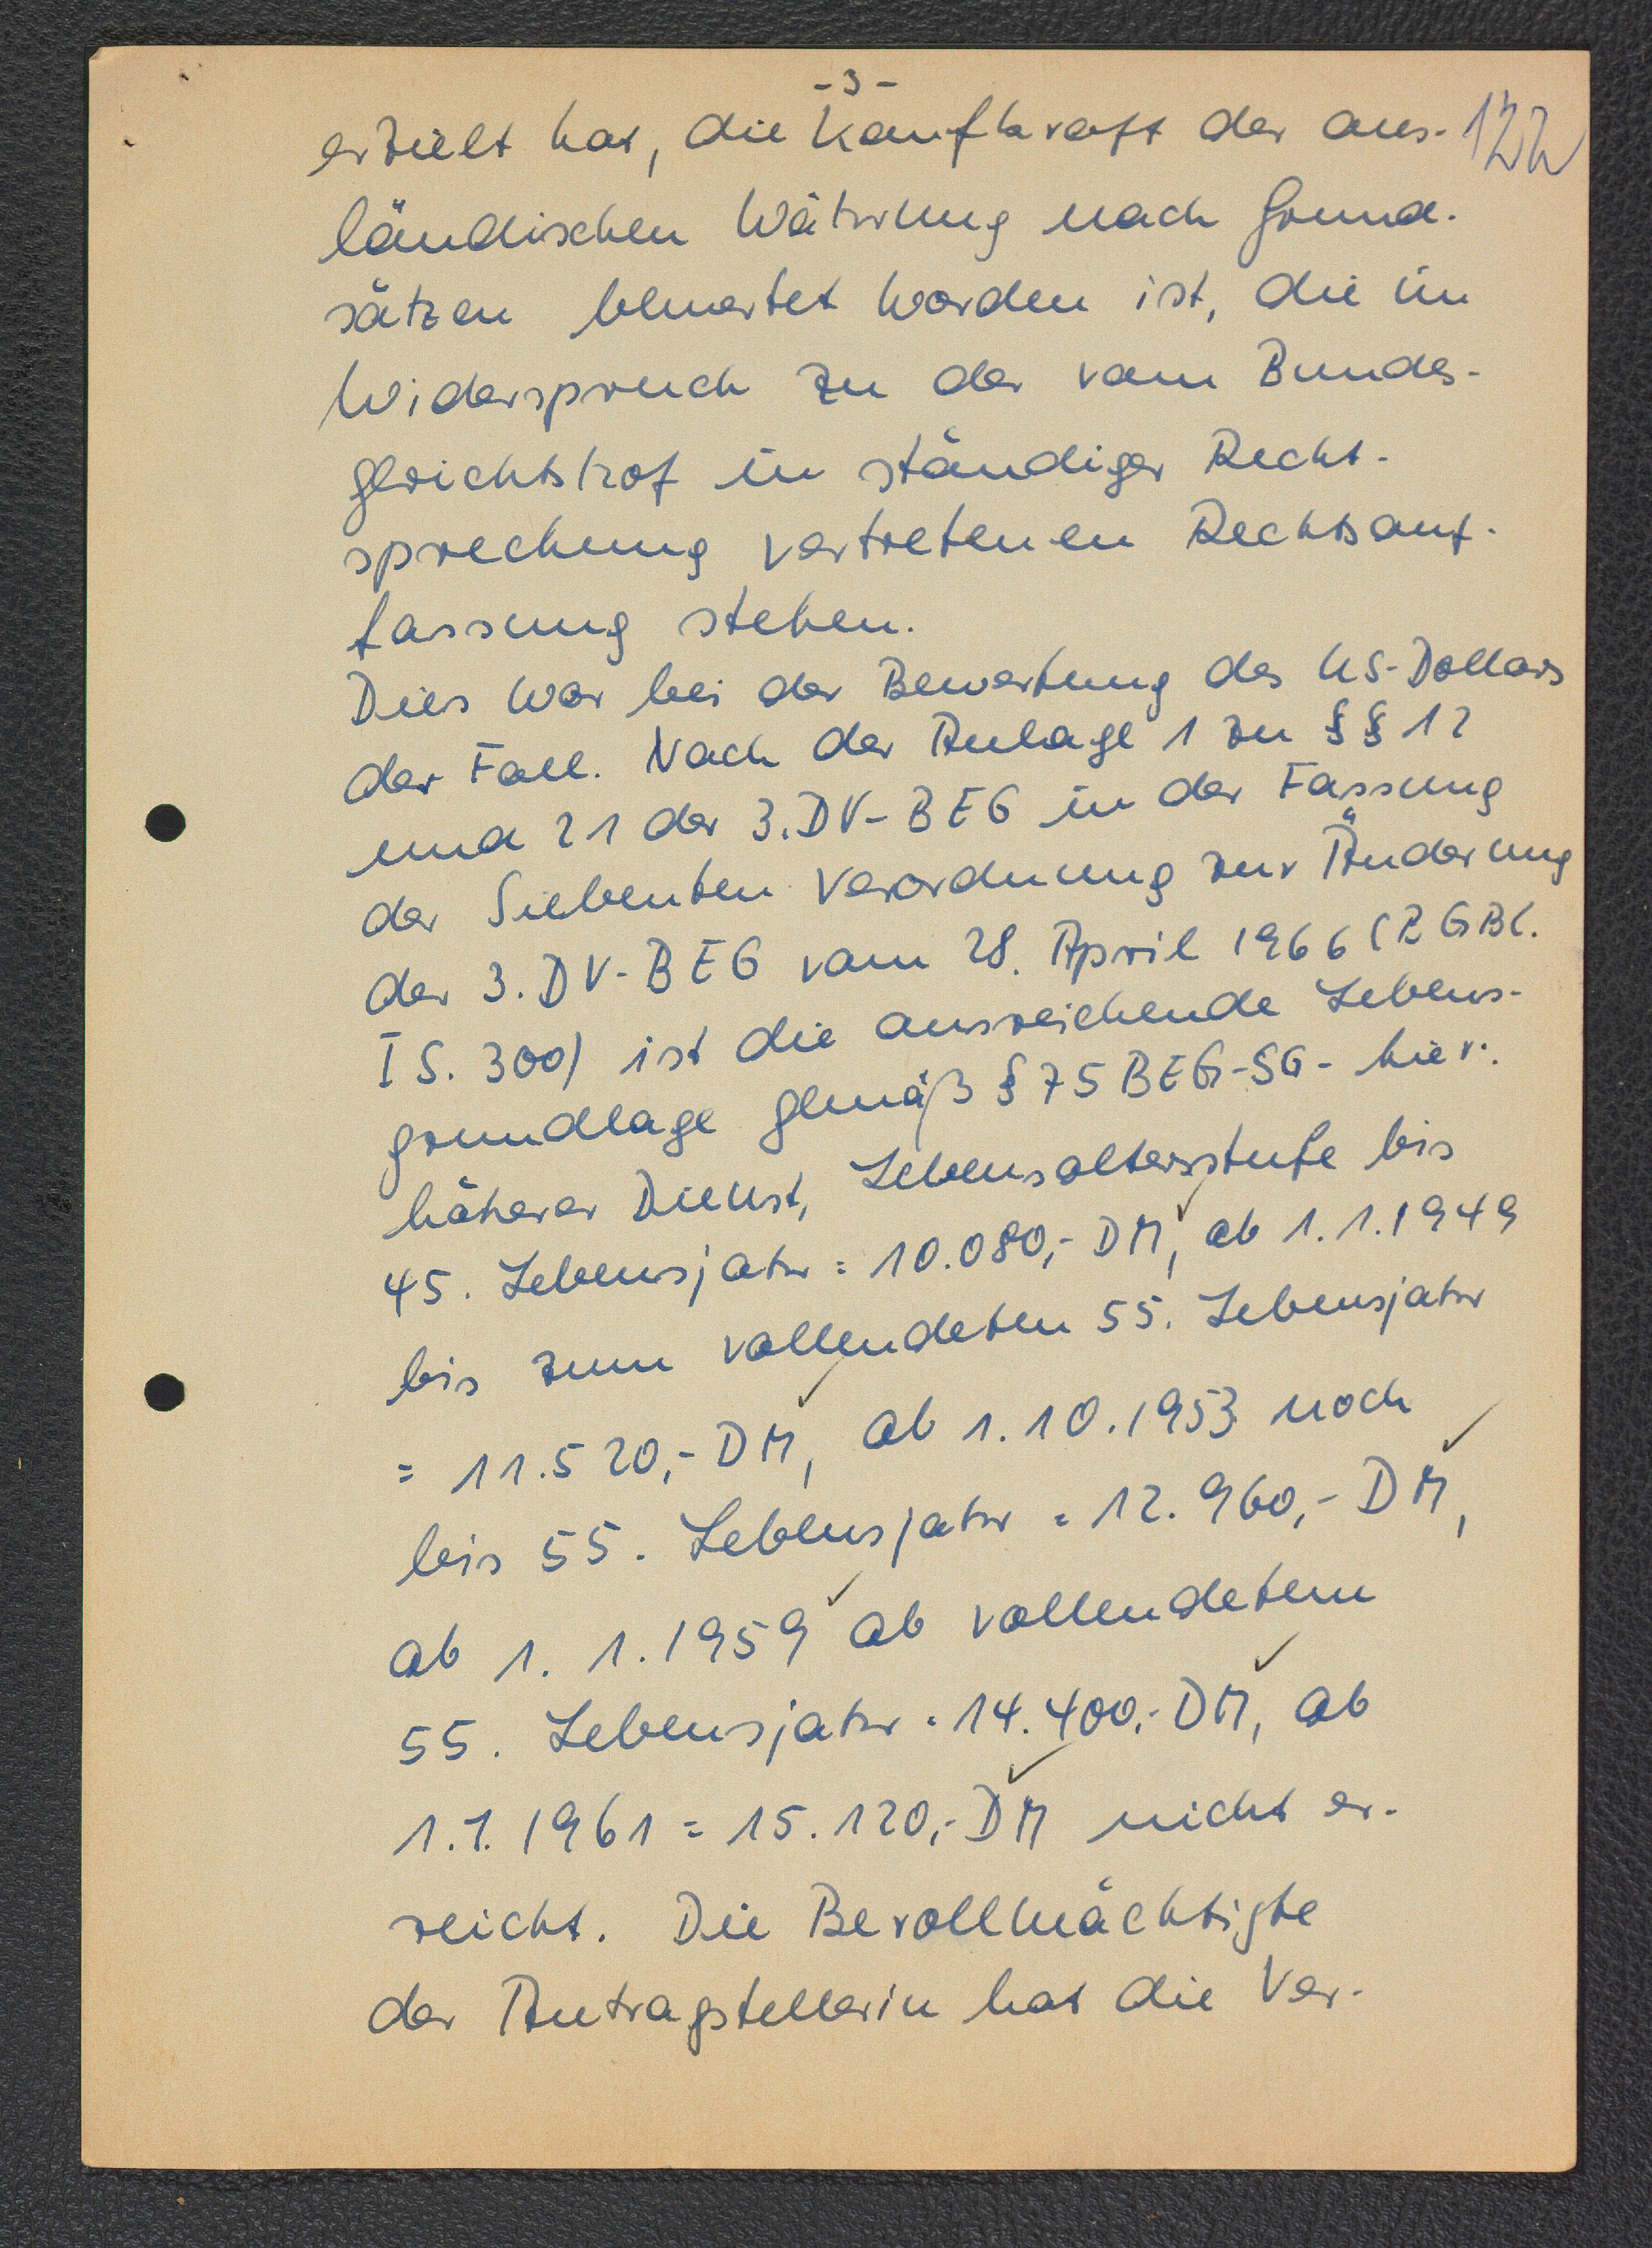 - 3 -
122
erzielt hat, die Kaufkraft der aus-
ländischen Währung nach Grund-
sätzen bewertet worden ist, die im
Widerspruch zu der vom Bundes-
gerichtshof in ständiger Recht-
sprechung vertretenen Rechtsauf-
fassung stehen.
Dies war bei der Bewertung des US-Dollars
der Fall. Nach der Anlage 1 zu §§ 12
und 21 der 3. DV-BEG in der Fassung
der Siebenten Verordnung zur Änderung
der 3. DV-BEG vom 28. April 1966 (BGBl.
I S. 300) ist die ausreichende Lebens-
grundlage gemäß § 75 BEG-SG - hier:
höherer Dienst, Lebensaltersstufe bis
45. Lebensjahr = 10.080,- DM, ab 1.1.1949
bis zum vollendeten 55. Lebensjahr
= 11.520,- DM, ab 1.10.1953 noch
bis 55. Lebensjahr = 12.960,- DM,
ab 1.1.1959 ab vollendetem
55. Lebensjahr = 14.400,- DM, ab
1.1.1961 = 15.120,- DM nicht er-
reicht. Die Bevollmächtigte
der Antragstellerin hat die Ver-